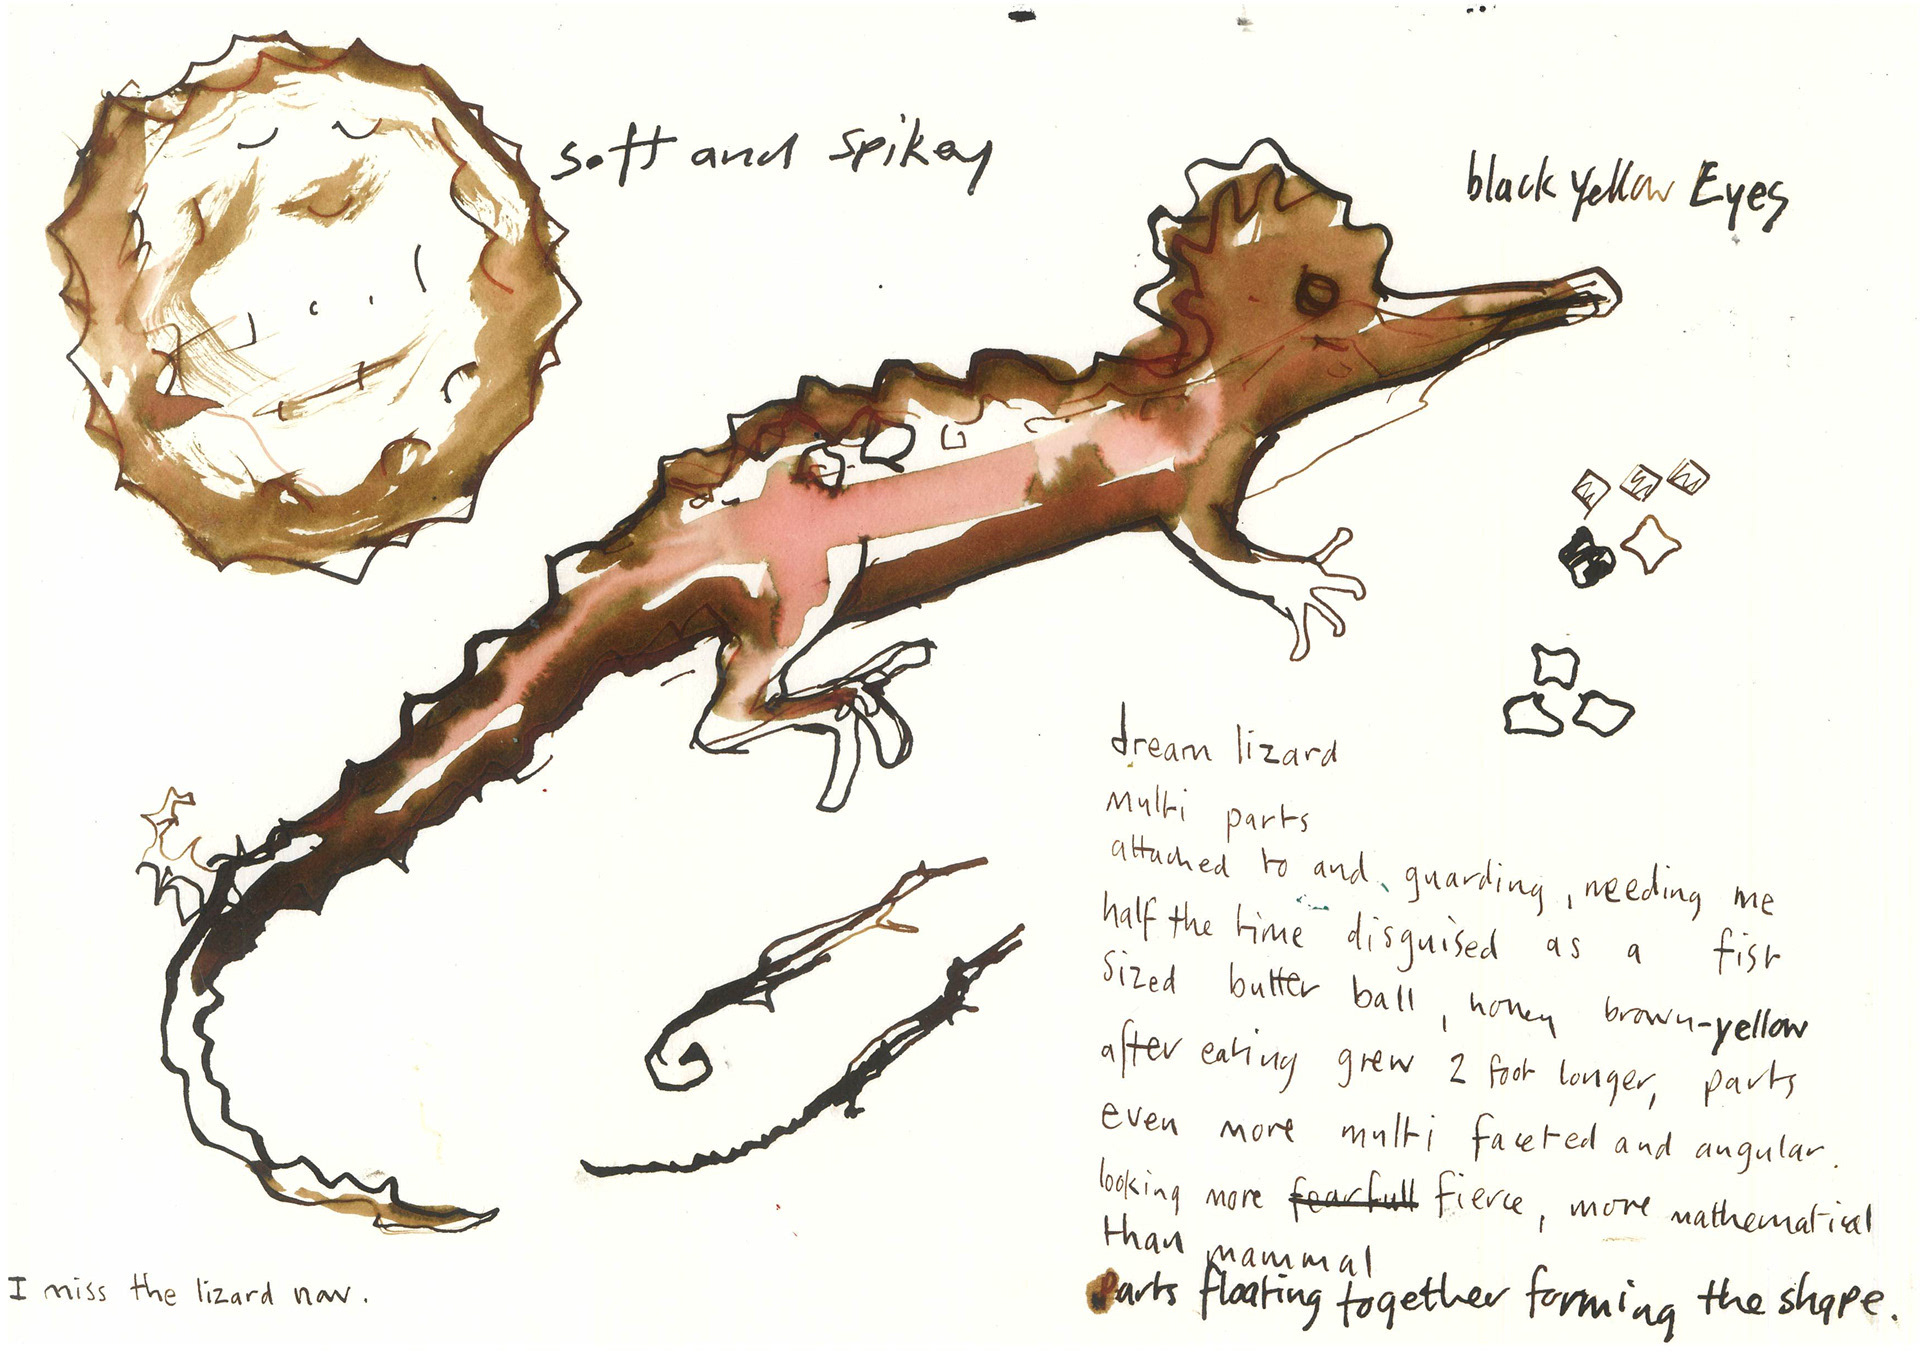 soft and spikey
black yellow Eyes
dream lizard
multi parts
attached to and, guarding, needing me
half the time disguised as a fist
sized butter ball, honey brown-yellow
after eating grew 2 foot longer, parts
even more multi faceted and angular.
looking more fearfull fierce, more mathematical
than mammal
Parts floating together forming the shape.
I miss the lizard now.